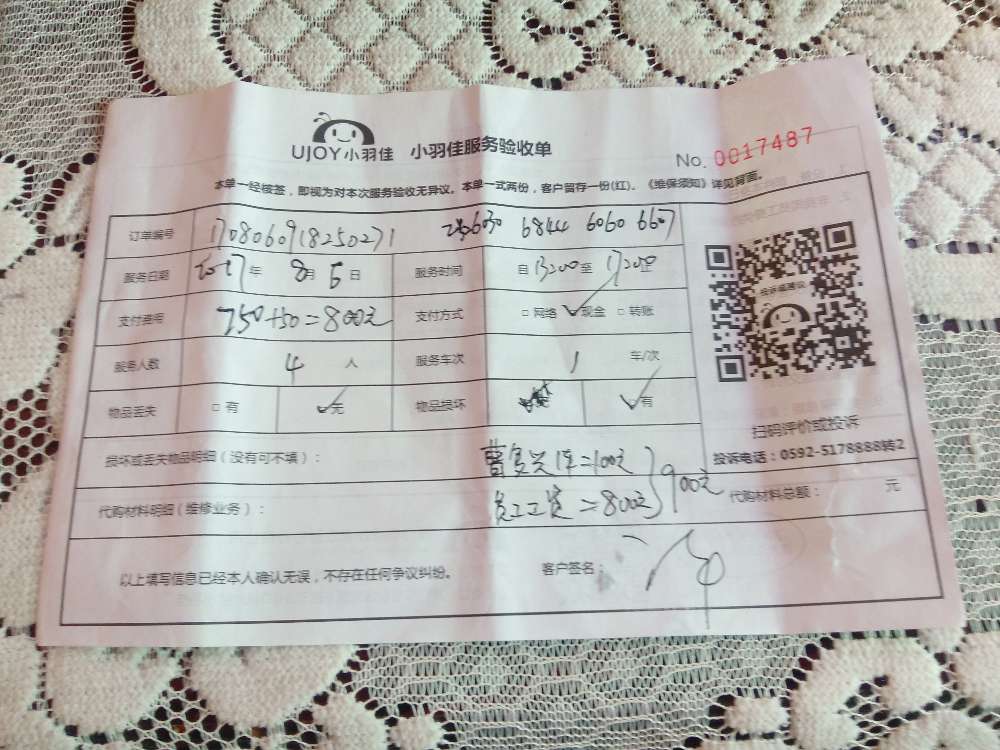 UJOY小羽佳 小羽佳服务验收单
No. 0017487
本单一经核签，即视为对本次服务验收无异议。本单一式两份，客户留存一份(红)。《维保须知》详见背面。
订单编号 1708060918250271 6844 6060 6607
服务日期 2017年 8月 6日 服务时间 自13200至17200止
支付说明 750+50=800元 支付方式 □网络 ☑现金 □转账
服务人数 4 人 服务车次 1 车/次
物品丢失 □有 ☑无 物品损坏 ☑有
损坏或丢失物品明细（没有可不填）： 曹复兴 =100元
代购材料明细（维修业务）： 员工工资 =800元 900元 代购材料总额： 元
以上填写信息已经本人确认无误，不存在任何争议纠纷。 客户签名：
投诉或建议
扫码评价或投诉
投诉电话：0592-5178888转2